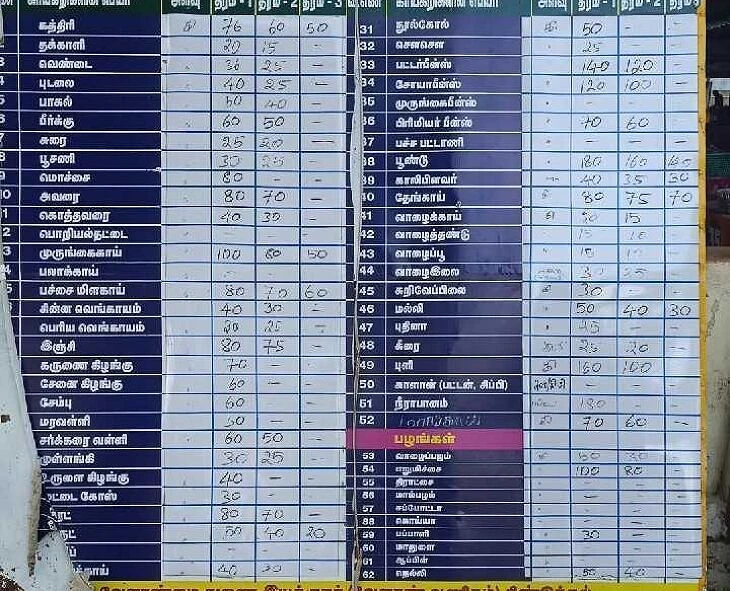 காய்கறிகளின் பெயர் அளவு தரம் - 1 தரம் - 2 தரம் - 3
கத்திரி கி 76 60 50
தக்காளி 20 15 -
வெண்டை 36 25 -
புடலை 40 25 -
பாகல் 50 40 -
பீர்க்கு 60 50 -
சுரை 25 20 -
பூசணி 30 25 -
மொச்சை 80 - -
அவரை 80 70 -
கொத்தவரை 40 30 -
பொறியல்தட்டை - - -
முருங்கைகாய் 100 80 50
பலாக்காய் - -
பச்சை மிளகாய் 80 70 60
சின்ன வெங்காயம் 40 30 -
பெரிய வெங்காயம் 25 -
இஞ்சி 80 75 -
கருணை கிழங்கு 70 - -
சேனை கிழங்கு 60 - -
சேம்பு 60 - -
மரவள்ளி 50 - -
சர்க்கரை வள்ளி 60 50 -
முள்ளங்கி 30 25 -
உருளை கிழங்கு 40 - -
முட்டை கோஸ் 30 - -
80 70 -
50 40 20
40 30 -
வ.எண் காய்கறிகளின் பெயர் அளவு தரம் - 1 தரம் - 2 தரம்
31 நூல்கோல் கி 50 - -
32 சௌசௌ 25 - -
33 பட்டர்பீன்ஸ் 140 120 -
34 சோயாபீன்ஸ் 120 100 -
35 முருங்கைபீன்ஸ் - - -
36 பிரிமியர் பீன்ஸ் 70 60 -
37 பச்ச பட்டாணி - - -
38 பூண்டு 180 160 140
39 காலிபிளவர் 40 35 30
40 தேங்காய் 80 75 70
41 வாழைக்காய் கி 20 15
42 வாழைத்தண்டு 15 10
43 வாழைப்பூ 15 10 -
44 வாழைஇலை 30 25 -
45 கறிவேப்பிலை 30 - -
46 மல்லி 50 40 30
47 புதினா 25 - -
48 கீரை 25 20 -
49 புளி கி 160 100 -
50 காளான் (பட்டன், சிப்பி) - - -
51 நீராபானம் 180 - -
52 70 60 -
பழங்கள்
53 வாழைப்பழம் 50 30 -
54 எலுமிச்சை 100 80 -
55 திராட்சை - - -
56 மாம்பழம் - - -
57 சப்போட்டா - - -
58 கொய்யா - - -
59 பப்பாளி 30 - -
60 மாதுளை - - -
61 ஆப்பிள் - - -
62 நெல்லி 50 40 -
வேளாண்மை துணை இயக்குநர் (வேளாண் வணிகம்) திண்டுக்கல்